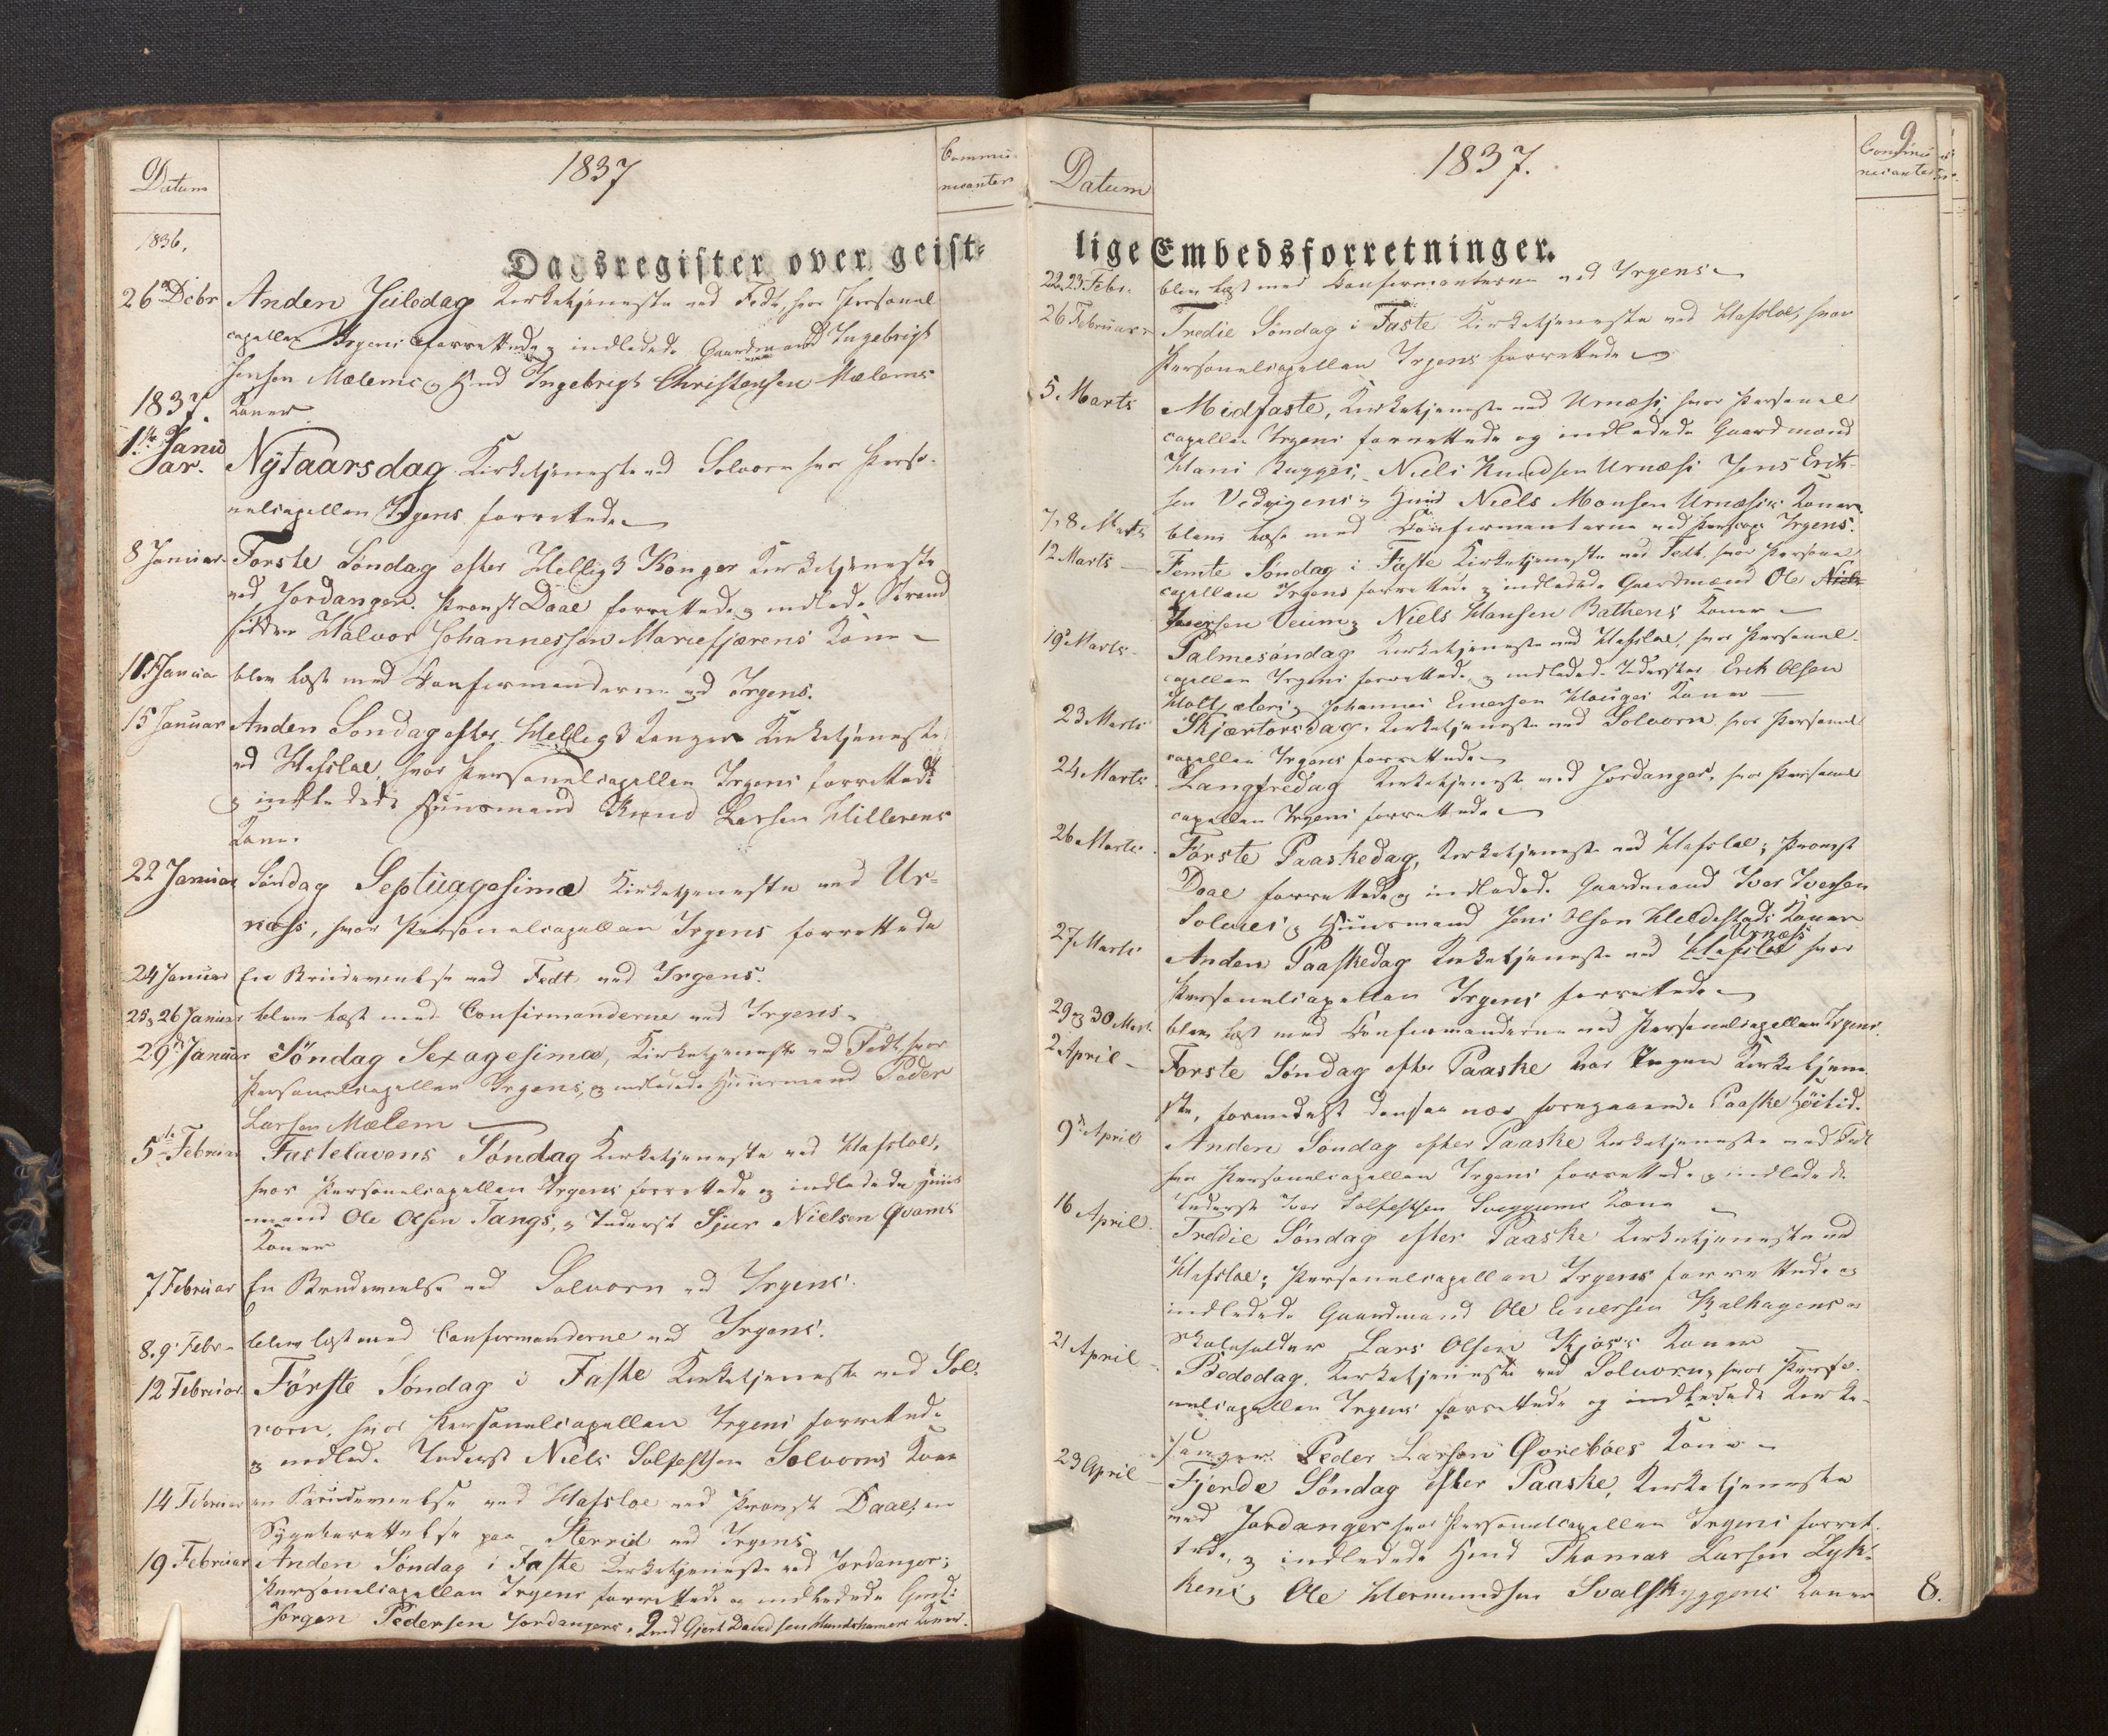 Datum
1837
Commu-
nicanter
1836.
Dagsregister over geist-
26 Decbr Anden Juledag Kirketjeneste ved Fedt, hvor Personel
capellan Irgens forrettede og indledede Gaardmænd Ingebrigt
Jensen Mælems og Huusmd Ingebrigt Christensen Mælems
1837. Koner
1ste Janu Nytaarsdag Kirketjeneste ved Solvorn hvor Perso-
ar.
nelcapellan Irgens forrettede
8 Januar Første Søndag efter Hellig 3 Konger Kirketjeneste
ved Jordanger. Provst Daae forrettede og indlede Strand
sidder Halvor Johannessen Mariefjærens Kone
Januar blev læst med Confirmanderne ved Irgens.
15 Januar Anden Søndag efter Hellig 3 Konger Kirketjeneste
ved Hafsloe, hvor Personelcapellan Irgens forrettede
og indledede Huusmand Knud Larsen Hillerens
Kone.
22 Januar Søndag Septuagesima Kirketjeneste ved Ur-
næss, hvor Personelcapellan Irgens forrettede
24 Januar En Brudevielse ved Fedt ved Irgens.
25 og 26 Januar blev læst med Confirmanderne ved Irgens.
29 Januar Søndag Sexagesima, Kirketjeneste ved Fedt, hvor
Personelcapellan Irgens, og indledede Huusmand Peder
Larsen Mælem
5te Februar Fastelavens Søndag Kirketjeneste ved Hafsloe,
hvor Personelcapellan Irgens forrettede og indledede Huus
mand Ole Olsen Tangs, og Inderst Sjur Nielsen Qvams
Koner
7 Februar En Brudevielse ved Solvorn ved Irgens.
8. 9. Febr. blev læst med Confirmanderne ved Irgens.
12 Februar Første Søndag i Faste Kirketjeneste ved Sol-
vorn, hvor Personelcapellan Irgens forrettede
og indled. Inderst Niels Solfestsen Solvorns Kone
14 Februar en Brudevielse ved Hafsloe ved Provst Daae, en
Sygeberettelse paa Sterrid ved Irgens
19 Februar Anden Søndag i Faste Kirketjeneste ved Jordanger;
Personelcapellan Irgens forrettede og indledede Grd:
Jørgen Pedersen Jordangers, Gjert Davidsen Mundshamers Koner.
Datum
1837.
9
Commu
nicanter
lige Embedsforretninger.
22. 23. Febr. blev læst med Confirmanterne ved Irgens
26 Februar Tredie Søndag i Faste Kirketjeneste ved Hafsloe, hvor
Personelcapellan Irgens forrettede
5 Marts Midfaste, Kirketjeneste ved Urnæss, hvor Personel
capellan Irgens forrettede og indledede Gaardmænd
Hans Bugges, Niels Knudsen Urnæss Jens Erik-
sen Vedvigens og Huusmd Niels Monsen Urnæss's Koner.
7. 8 Marts blev læst med Confirmanterne ved Perscap: Irgens.
12 Marts Femte Søndag i Faste Kirketjeneste ved Fedt, hvor Personel
capellan Irgens forrettede og indledede Gaardmænd Ole Niels
Iversen Veum og Niels Hansen Bathens Koner
19 Marts Palmesøndag Kirketjeneste ved Hafsloe, hvor Personel-
capellan Irgens forrettede, og indledede Inderster Erik Olsen
Holtsæters og Johannes Einersen Hauges Koner
23 Marts Skjærtorsdag. Kirketjeneste ved Solvorn, hvor Personel
capellan Irgens forrettede
24 Marts. Langfredag Kirketjeneste ved Jordanger, hvor Personel
capellan Irgens forrettede
26 Marts. Første Paaskedag, Kirketjeneste ved Hafsloe; Provst
Daae forrettede og indledede Gaardmand Iver Iversen
Solaies og Huusmand Jens Olsen Hildestads Koner
27 Marts Anden Paaskedag Kirketjeneste ved Hafsloe Urnæss hvor
Personelcapellan Irgens forrettede
29 og 30 Mart. blev læst med Confirmanderne ved Personelcapellan Irgens.
2 April Første Søndag efter Paaske var Ingen Kirketjene-
ste, formedelst den saa nær foregaaende Paaske Høitid.
9 April Anden Søndag efter Paaske Kirketjeneste ved Fedt
hvor Personelcapellan Irgens forrettede og indledede
Inderst Iver Solfestsen Sveggums Kone
16 April. Tredie Søndag efter Paaske Kirketjeneste ved
Hafsloe; Personelcapellan Irgens forrettede og
indledede Gaardmand Ole Einersen Kalhagens og
Skoleholder Lars Olsen Kjøs's Koner
21 April Bededag. Kirketjeneste ved Solvorn, hvor Perso-
nelcapellan Irgens forrettede og indledede Kirke-
sanger Peder Larsen Øvrebøes Kone
23 April Fjerde Søndag efter Paaske, Kirketjeneste
ved Jordanger hvor Personelcapellan Irgens forret-
tede, og indledede Huusmd Thomas Larsen Lyk-
kens, Ole Hermundsen Svalskyggens Koner 8.